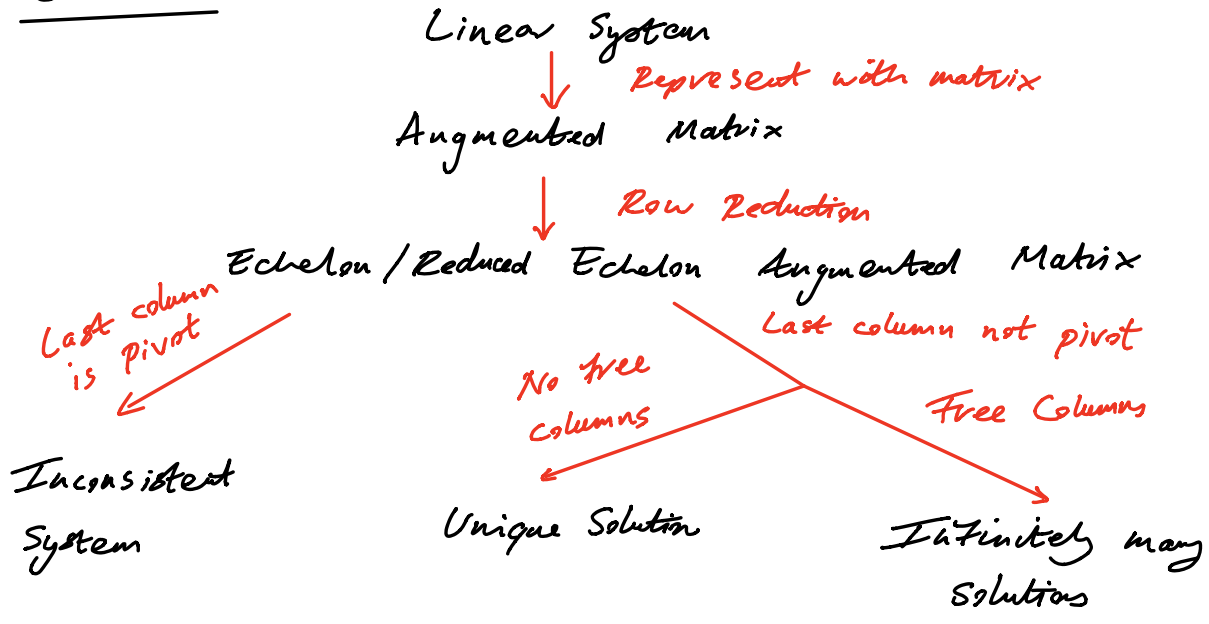 Linear System
Represent with matrix
Augmented Matrix
Row Reduction
Echelon / Reduced Echelon Augmented Matrix
Last column
is pivot
Last column not pivot
No free
columns
Free Columns
Inconsistent
System
Unique Solution
Infinitely many
solutions